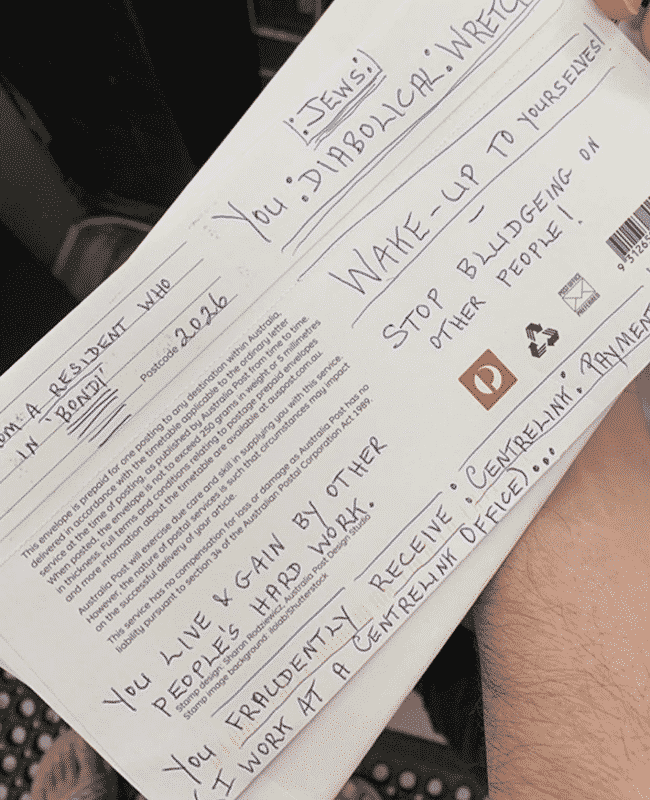 :JEWS:
YOU :DIABOLICAL: WRETC
WAKE-UP TO YOURSELVES!
STOP BLUDGEING ON
OTHER PEOPLE!
OM A RESIDENT WHO
IN 'BONDI'
Postcode 2026
This envelope is prepaid for one posting to any destination within Australia,
delivered in accordance with the timetable applicable to the ordinary letter
service at the time of posting, as published by Australia Post from time to time.
When posted, the envelope is not to exceed 250 grams in weight or 5 millimetres
in thickness. Full terms and conditions relating to postage prepaid envelopes
and more information about the timetable are available at auspost.com.au.
Australia Post will exercise due care and skill in supplying you with this service.
However, the nature of postal services is such that circumstances may impact
on the successful delivery of your article.
This service has no compensation for loss or damage as Australia Post has no
liability pursuant to section 34 of the Australian Postal Corporation Act 1989.
Stamp design: Sharon Rodziewicz, Australia Post Design Studio
Stamp image background: ilolab/Shutterstock
POST OFFICE
PREFERRED
YOU LIVE & GAIN BY OTHER
PEOPLE'S HARD WORK.
YOU FRAUDENTLY RECEIVE :CENTRELINK: PAYMENT
(I WORK AT A CENTRELINK OFFICE)...